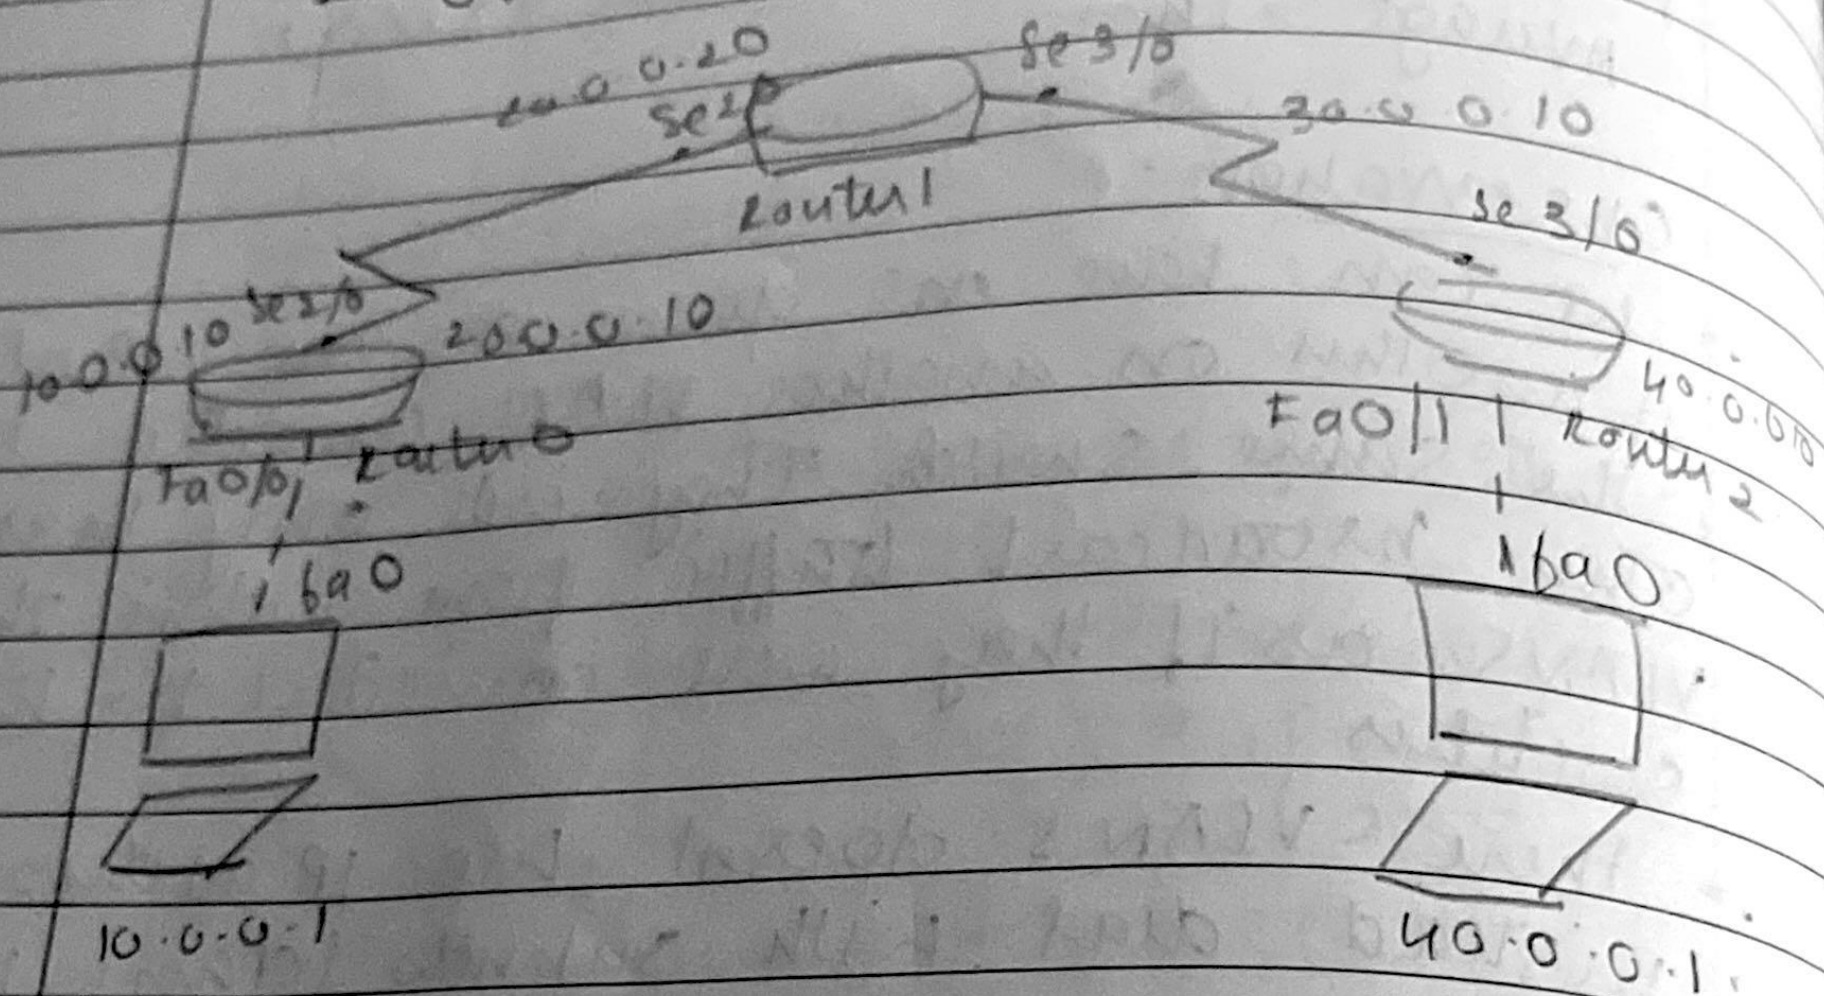 Se 3/0
20.0.0.20
Se2/0
30.0.0.10
Router 1
Se 3/0
10.0.0.10
Se2/0
20.0.0.10
40.0.0.10
Fa0/1
Router 2
Fa0/0
Router 0
fa0
fa0
10.0.0.1
40.0.0.1